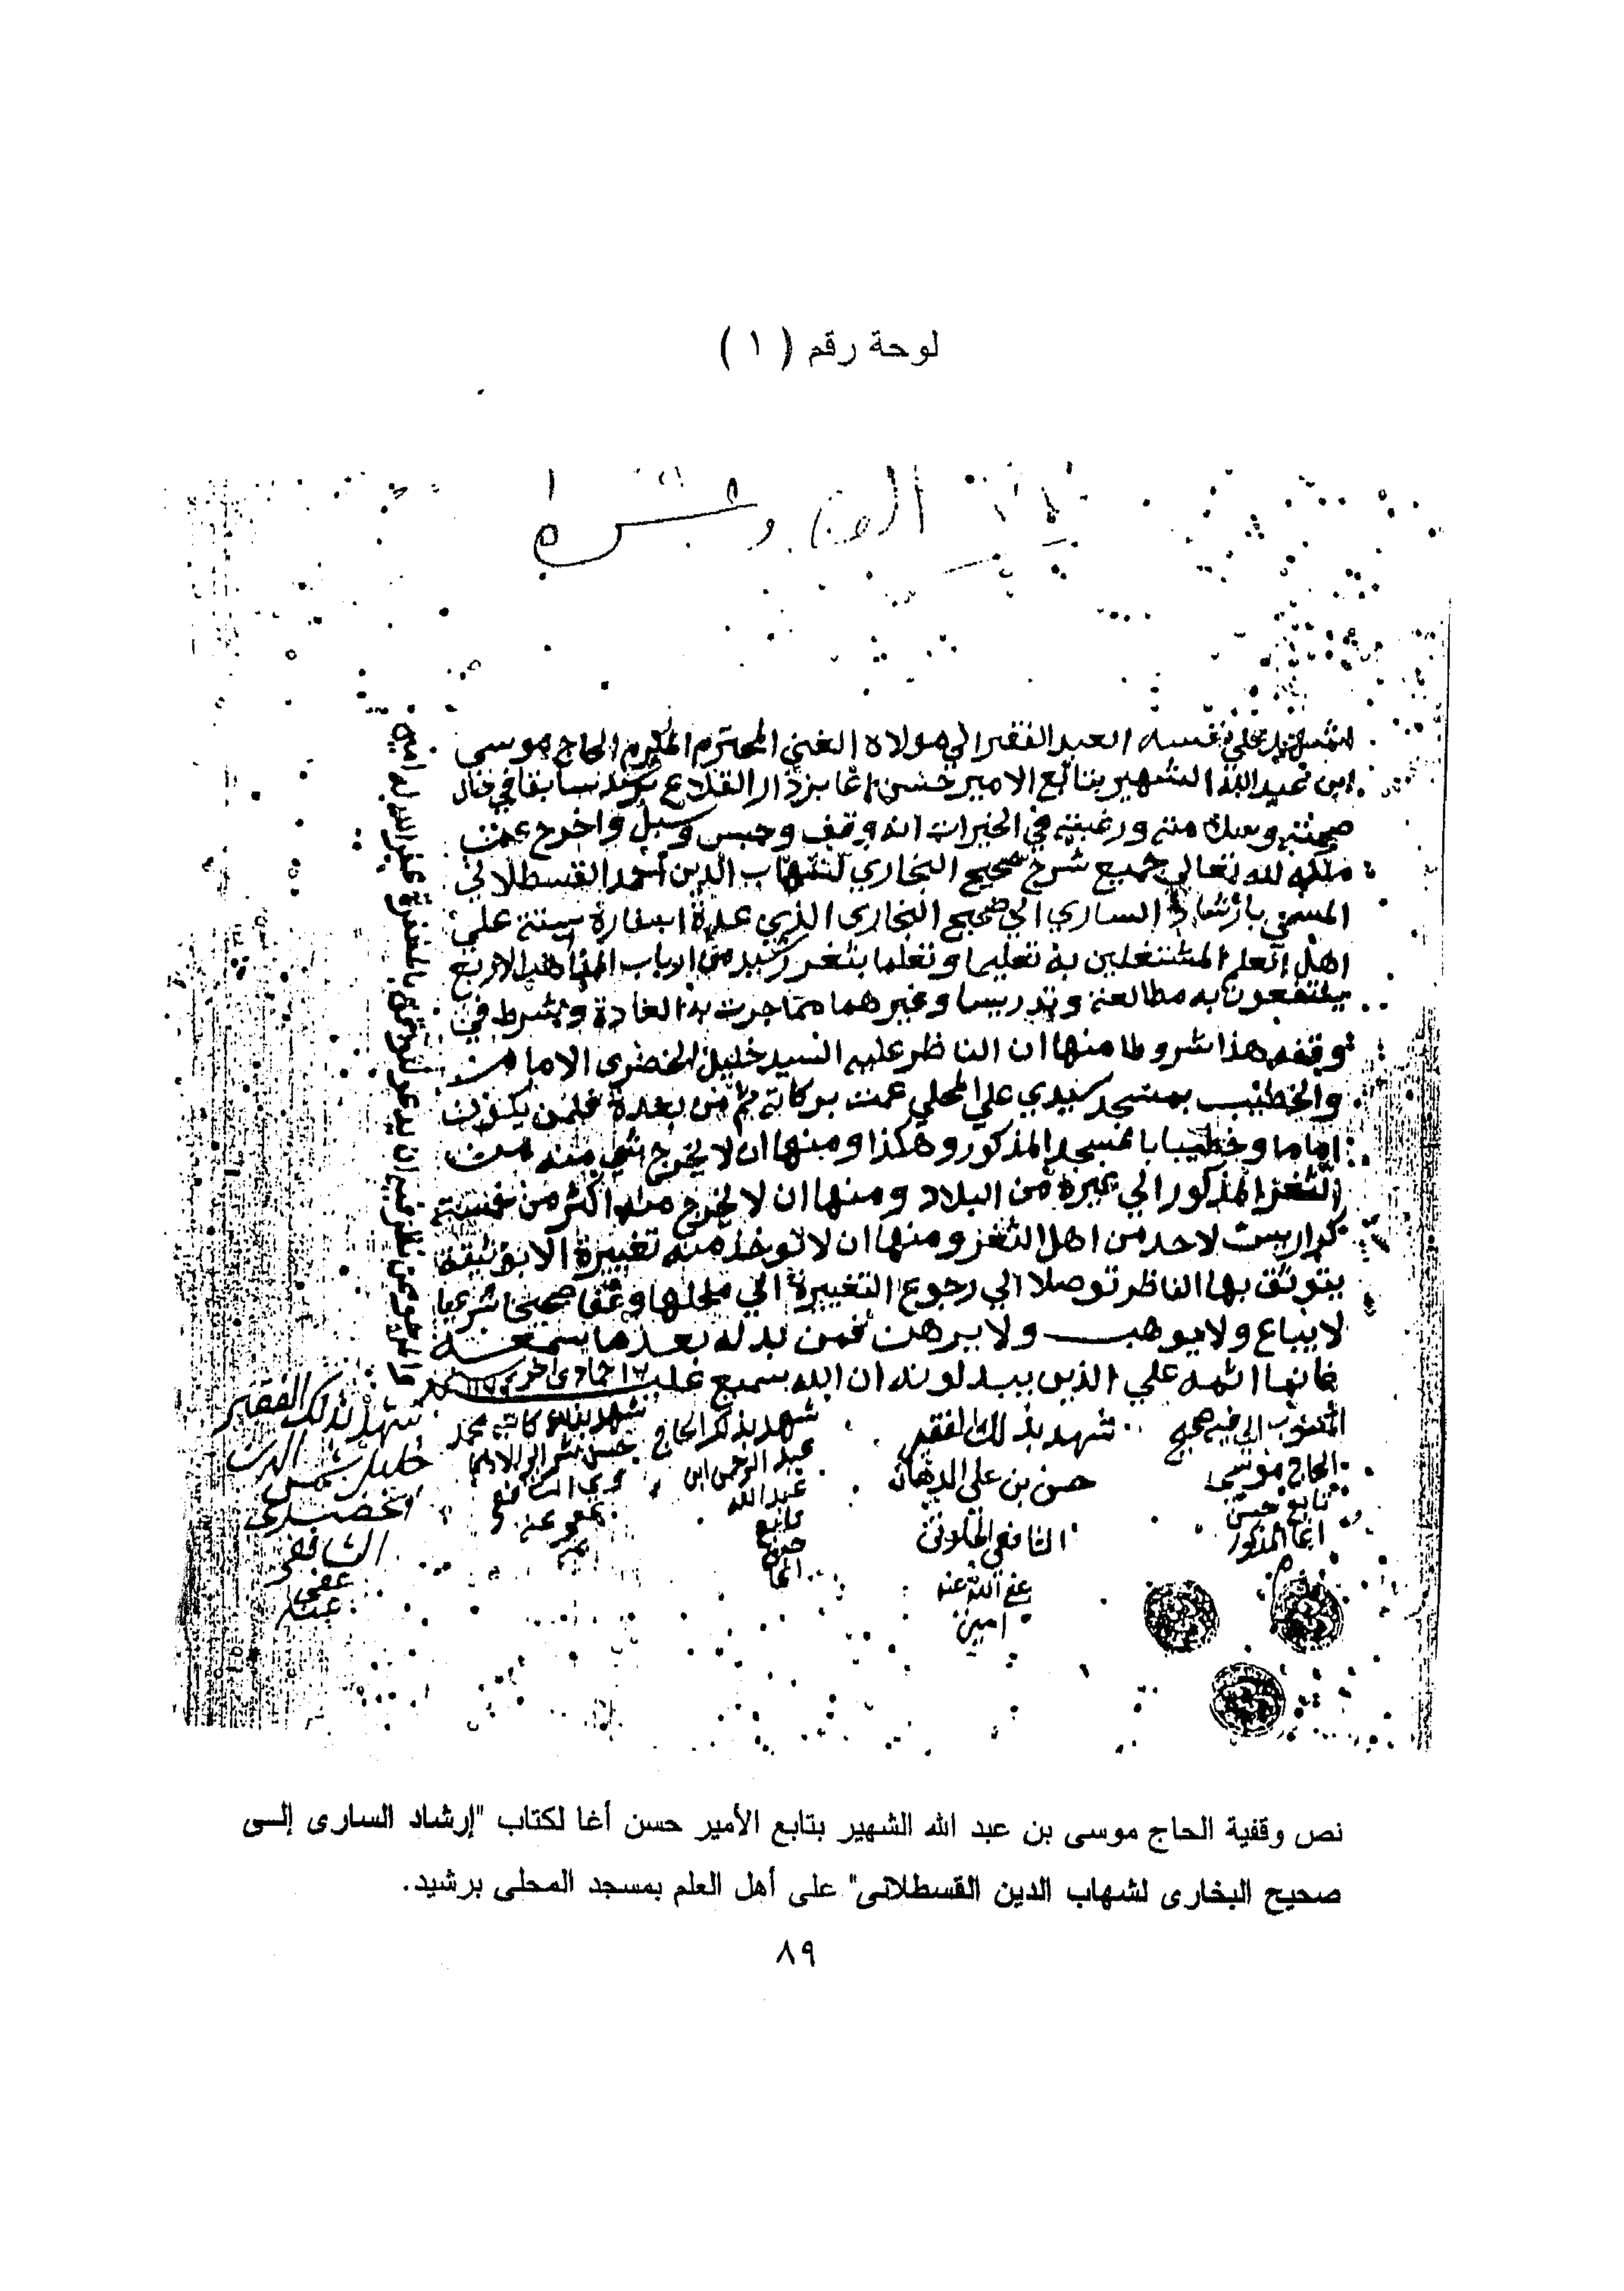 لوحة رقم ( ١ )
نفسه العبد الفقير الي مولاه الغني المحترم المكرم الحاج موسي
ابن عبد الله الشهير بتابع الامير حسن اغا بزدار القلاع سابقا في حال
صحته ورغبته في الخيرات انه وقف وحبس وسبل واخرج عن
ملكه لله تعالي جميع شرح صحيح البخاري لشهاب الدين احمد القسطلاني
المسمي بارشاد الساري الي صحيح البخاري الذي عدة اسفاره ستة علي
اهل العلم المشتغلين به تعليما وتعلما بثغر رشيد من ارباب المذاهب الاربع
ينتفعون به مطالعة وتدريسا وغيرهما مما جرت به العادة وشرط في
وقفه هذا شروطا منها ان الناظر عليه السيد خليل الخضري الامام
والخطيب بمسجد سيدي علي المحلي عمت بركاته ثم من بعده فلمن يكون
اماما وخطيبا بالمسجد المذكور وهكذا ومنها ان لا يخرج شي منه من
الثغر المذكور الي غيره من البلاد ومنها ان لا يخرج منه اكثر من خمسة
كراريس لاحد من اهل الثغر ومنها ان لا توخذ منه تغييرة الا بوثيقة
يتوثق بها الناظر توصلا الي رجوع التغييرة الي محلها وقفا صحيحا شرعيا
لا يباع ولا يوهب ولا يرهن فمن بدله بعدما سمعه
فانما اثمه علي الذين يبدلونه ان الله سميع عليم ١٦ جمادي اخر
المنسوب اليه صحيح
الحاج موسي
تابع حسن
اغا المذكور
شهد بذلك الفقير
حسن بن علي الدهان
الشافعي الخلوتي
عفي الله عنه
امين
شهد بذلك الحاج
عبد الرحمن ابن
عبد الله
تابع
حسن
اغا
شهد بذلك كاتبه محمد
الشافعي
عفي عنه
شهد بذلك الفقير
خليل شمس الدين
الخضري
الشافعي
عفي
عنه
نص وقفية الحاج موسى بن عبد الله الشهير بتابع الأمير حسن أغا لكتاب "إرشاد السارى إلــى
صحيح البخارى لشهاب الدين القسطلانى" على أهل العلم بمسجد المحلى برشيد.
٨٩